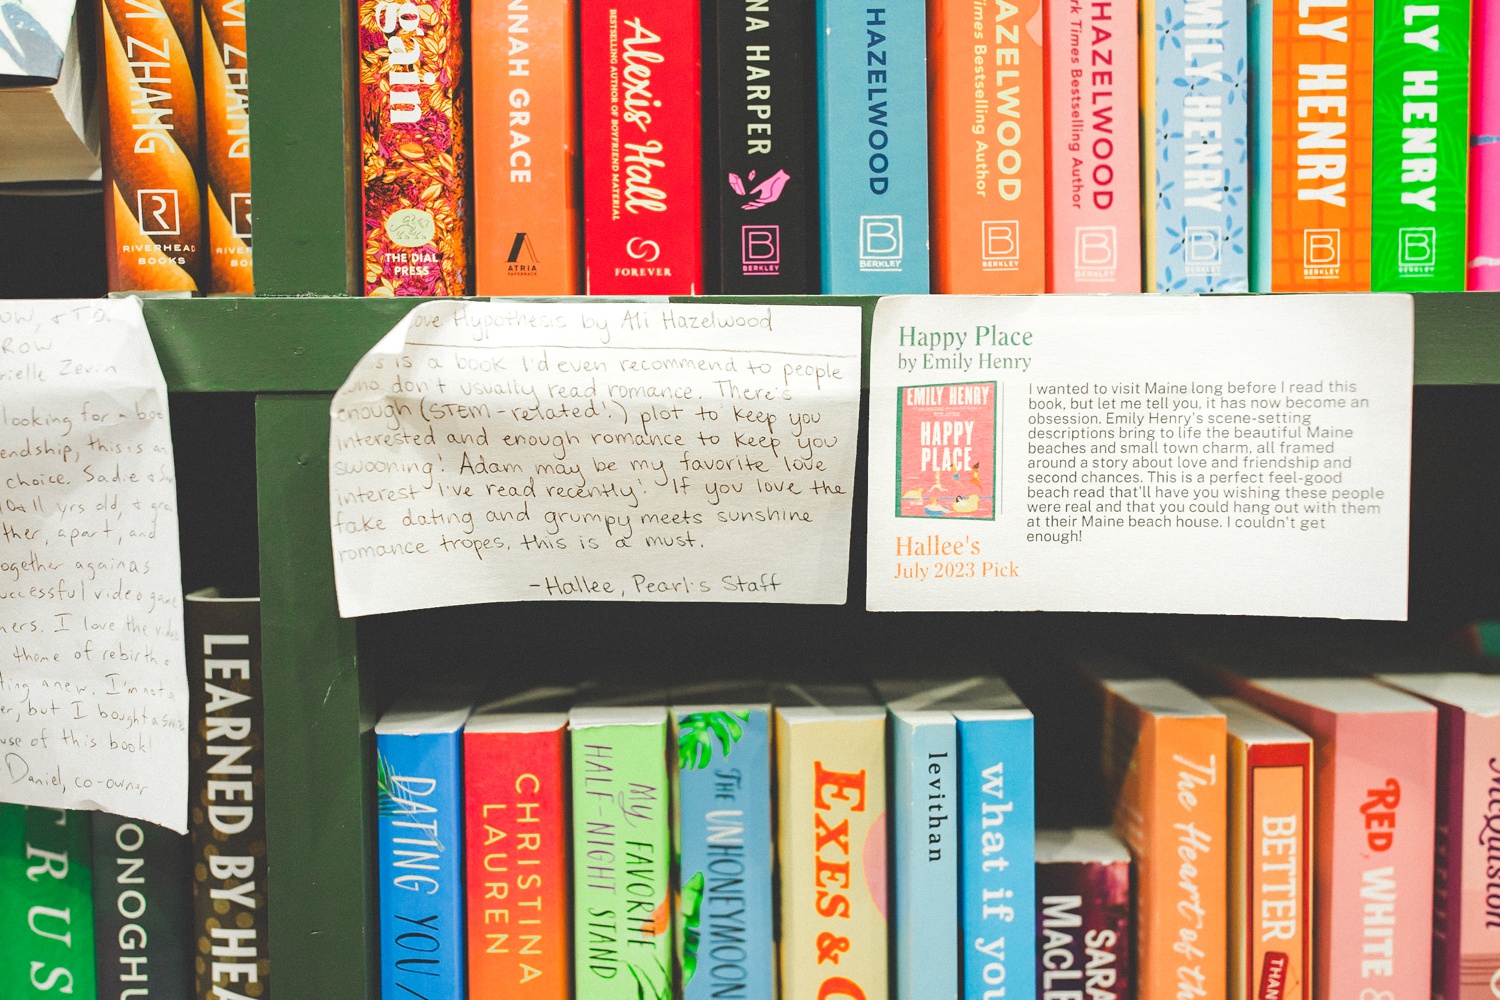 M ZHANG
RIVERHEAD
BOOKS
ZHANG
gain
THE DIAL
PRESS
NNAH GRACE
ATRIA
PAPERBACK
Alexis Hall
BESTSELLING AUTHOR OF BOYFRIEND MATERIAL
FOREVER
NA HARPER
B
BERKLEY
HAZELWOOD
B
BERKLEY
HAZELWOOD
Times Bestselling Author
B
BERKLEY
HAZELWOOD
rk Times Bestselling Author
B
BERKLEY
MILY HENRY
B
BERKLEY
LY HENRY
B
BERKLEY
LY HENRY
B
BERKLEY
ow, & To
row
rielle Zevin
looking for a boo
endship, this is an
choice. Sadie & Sa
10 & 11 yrs old, & gro
ther, apart, and
ogether again as
uccessful video game
ners. I love the vide
theme of rebirth &
ting anew. I'm not a
er, but I bought a
use of this book!
Daniel, co-owner
ove Hypothesis by Ali Hazelwood
s is a book I'd even recommend to people
who don't usually read romance. There's
enough (STEM-related!) plot to keep you
interested and enough romance to keep you
swooning! Adam may be my favorite love
interest I've read recently! If you love the
fake dating and grumpy meets sunshine
romance tropes, this is a must.
-Hallee, Pearl's Staff
Happy Place
by Emily Henry
EMILY HENRY
HAPPY
PLACE
I wanted to visit Maine long before I read this
book, but let me tell you, it has now become an
obsession. Emily Henry's scene-setting
descriptions bring to life the beautiful Maine
beaches and small town charm, all framed
around a story about love and friendship and
second chances. This is a perfect feel-good
beach read that'll have you wishing these people
were real and that you could hang out with them
at their Maine beach house. I couldn't get
enough!
Hallee's
July 2023 Pick
TRUS
ONOGHU
LEARNED BY HEA
DATING YOU /
CHRISTINA
LAUREN
MY FAVORITE
HALF-NIGHT STAND
THE UNHONEYMOON
EXES &
levithan
what if you
SARA
MACLE
The Heart of th
BETTER
THAN
RED, WHITE &
McQuiston